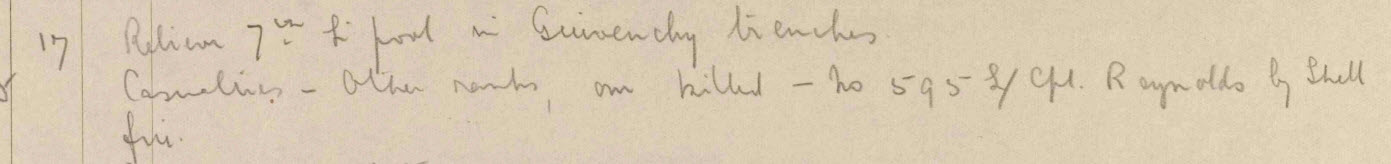 17 Relieve 7th L'pool in Guivenchy trenches.
Casualties - Other ranks, one killed - No 595 L/Cpl. Reynolds by Shell
fire.